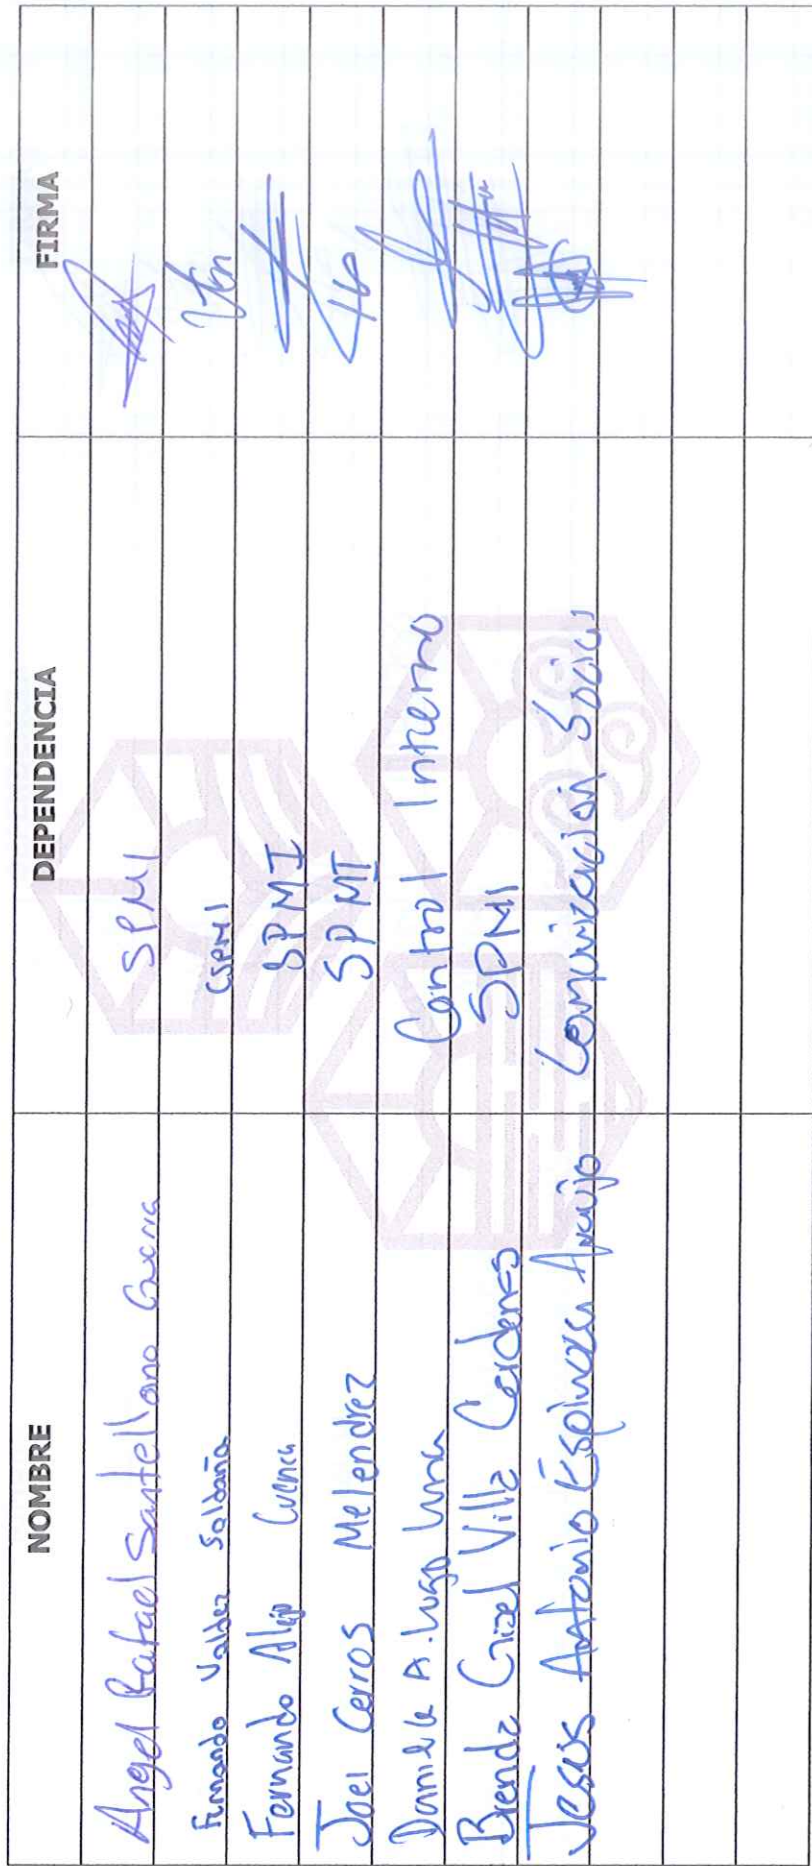 NOMBRE DEPENDENCIA FIRMA
Angel Rafael Santellano SPMI
Fernando Valdez Saldaña SPMI
Fernando Alejo Cuenca SPMI
Joel Cerros Melendrez SPMI
Daniela A. Lugo Luna Control Interno
Brenda Gisel Villa Cardenas SPMI
Jesus Antonio Espinoza Araujo Comunicación Social